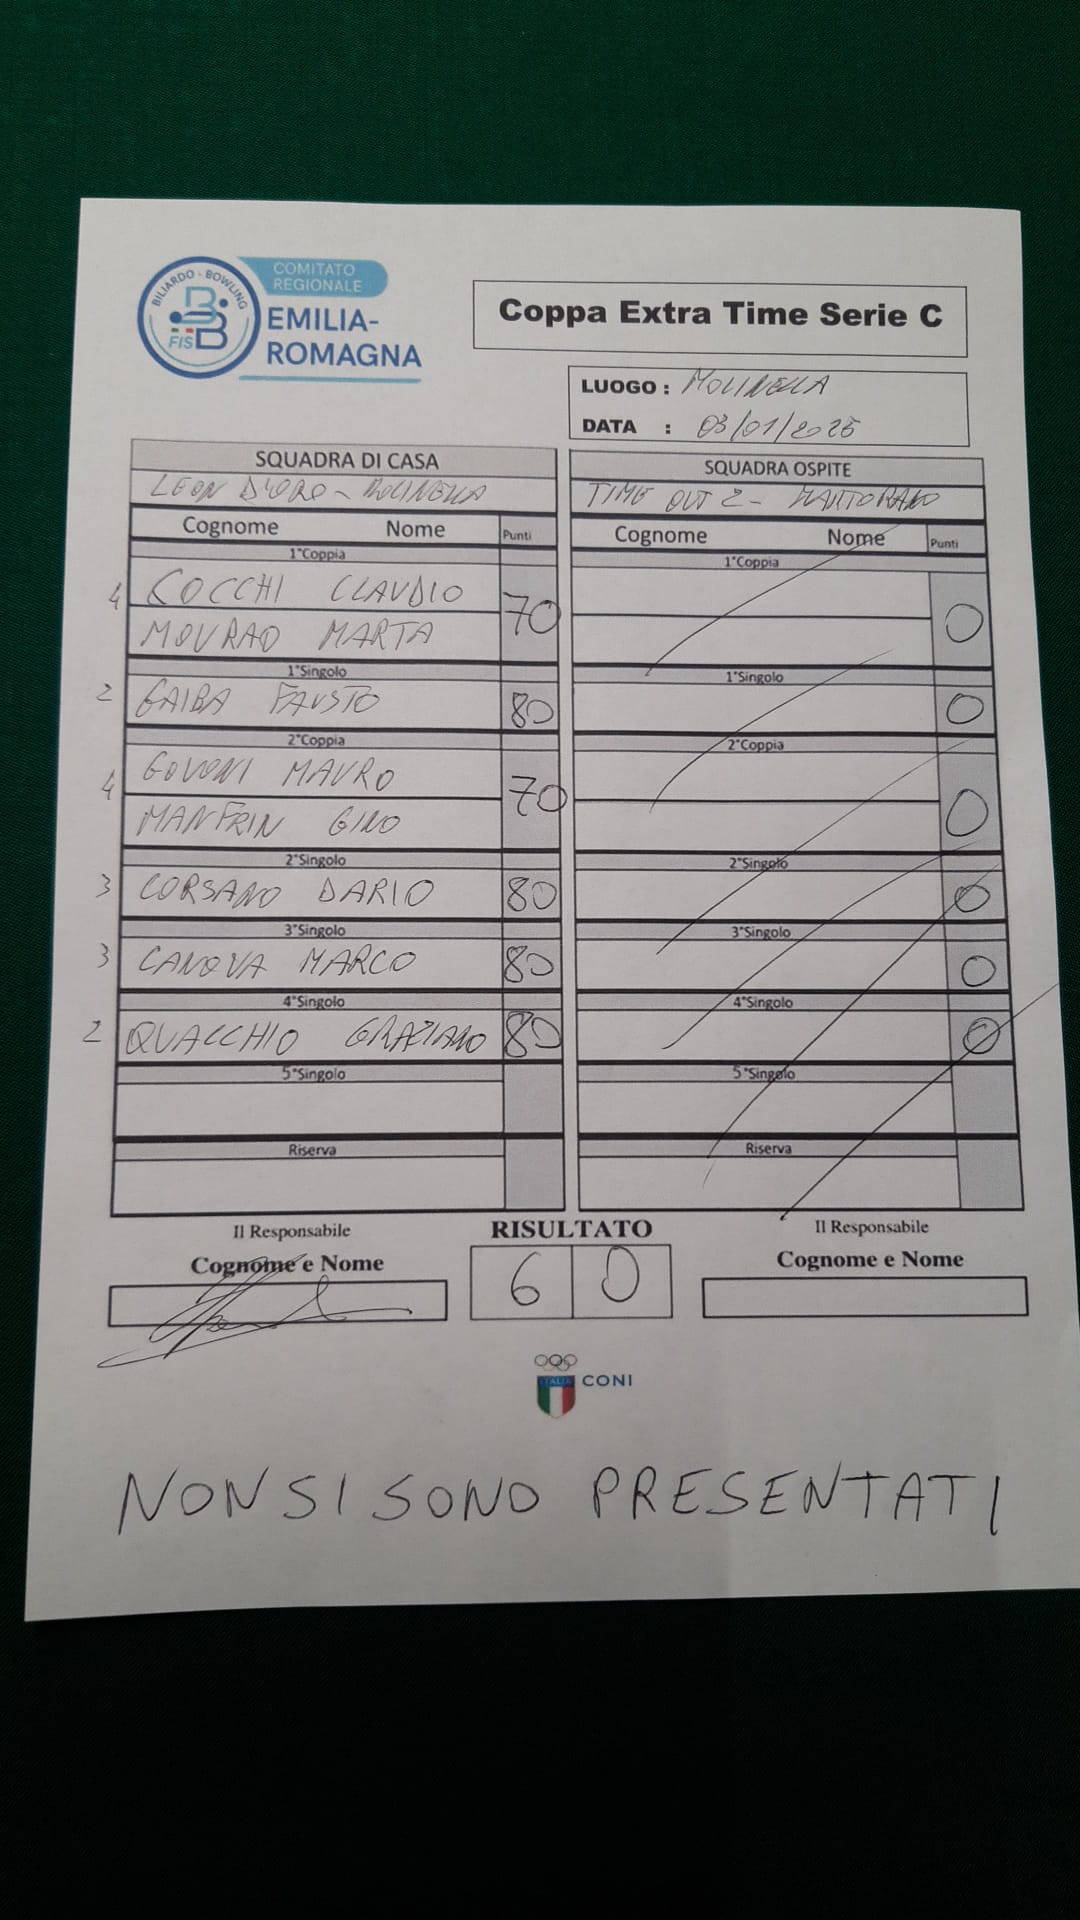 BILIARDO - BOWLING
FIS
COMITATO
REGIONALE
EMILIA-
ROMAGNA
Coppa Extra Time Serie C
LUOGO : MOLINELLA
DATA : 03/01/2025
SQUADRA DI CASA
LEON D'ORO - MOLINELLA
Cognome Nome Punti
1°Coppia
4 COCCHI CLAUDIO
MOURAO MARTA
70
1°Singolo
2 GAIBA FAUSTO 80
2°Coppia
4 GOVONI MAURO
MANFRIN GINO
70
2°Singolo
3 CORSANO DARIO 80
3°Singolo
3 CANOVA MARCO 80
4°Singolo
2 QUACCHIO GRAZIANO 80
5°Singolo
Riserva
SQUADRA OSPITE
TIME OUT 2 - MARTORANO
Cognome Nome Punti
1°Coppia
0
1°Singolo
0
2°Coppia
0
2°Singolo
0
3°Singolo
0
4°Singolo
0
5°Singolo
Riserva
Il Responsabile
Cognome e Nome
RISULTATO
6 0
Il Responsabile
Cognome e Nome
ITALIA
CONI
NON SI SONO PRESENTATI